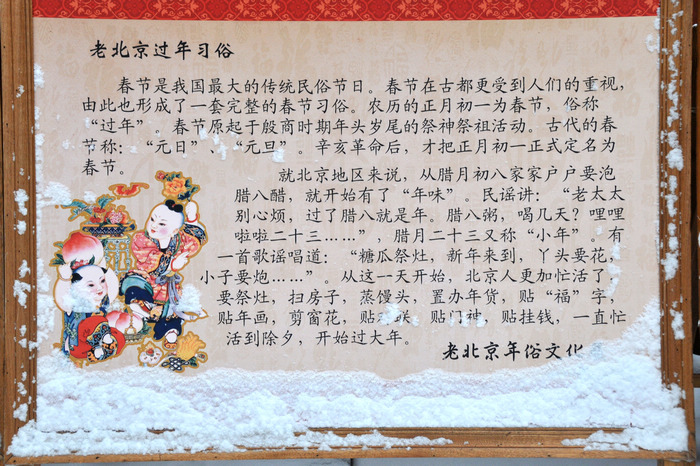 老北京过年习俗
春节是我国最大的传统民俗节日。春节在古都更受到人们的重视,
由此也形成了一套完整的春节习俗。农历的正月初一为春节,俗称
“过年”。春节原起于殷商时期年头岁尾的祭神祭祖活动。古代的春
节称:“元日”、“元旦”。辛亥革命后,才把正月初一正式定名为
春节。
就北京地区来说,从腊月初八家家户户要泡
腊八醋,就开始有了“年味”。民谣讲:“老太太
别心烦,过了腊八就是年。腊八粥,喝几天?哩哩
啦啦二十三……”,腊月二十三又称“小年”。有
一首歌谣唱道:“糖瓜祭灶,新年来到,丫头要花,
小子要炮……”。从这一天开始,北京人更加忙活了,
要祭灶,扫房子,蒸馒头,置办年货,贴“福”字,
贴年画,剪窗花,贴 联,贴门神,贴挂钱,一直忙
活到除夕,开始过大年。
老北京年俗文化